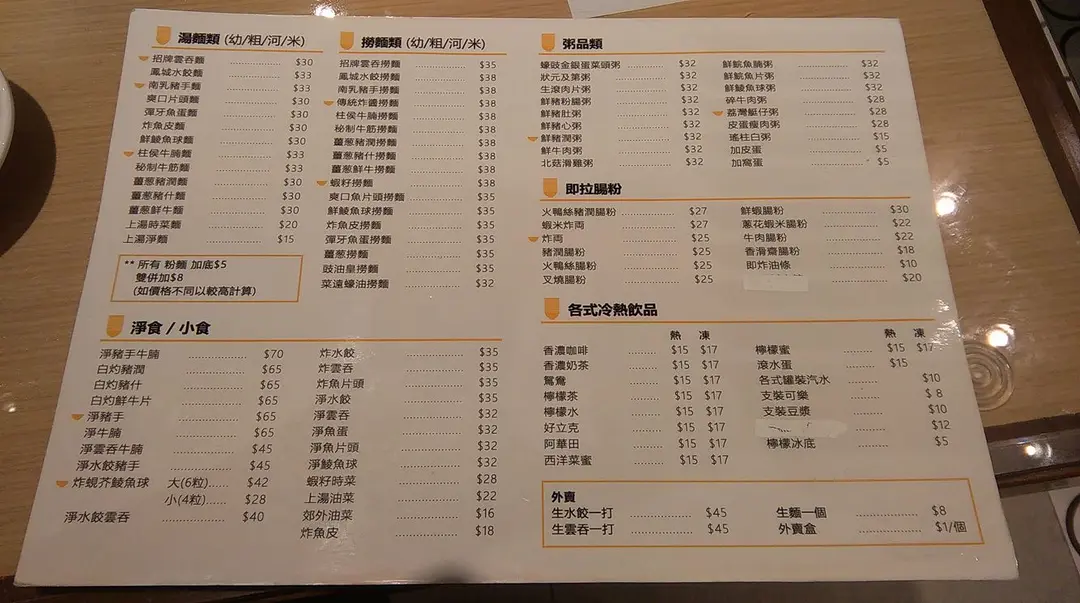 湯麵類 (幼/粗/河/米)
招牌雲吞麵 ............ $30
鳳城水餃麵 ............ $33
南乳豬手麵 ............ $33
爽口片頭麵 ............ $30
彈牙魚蛋麵 ............ $30
炸魚皮麵 ............ $30
鮮鯪魚球麵 ............ $30
柱侯牛腩麵 ............ $33
秘制牛筋麵 ............ $33
薑葱豬潤麵 ............ $30
薑葱豬什麵 ............ $30
薑葱鮮牛麵 ............ $30
上湯時菜麵 ............ $20
上湯淨麵 ............ $15
** 所有 粉麵 加底$5
雙併加$8
(如價格不同以較高計算)
撈麵類 (幼/粗/河/米)
招牌雲吞撈麵 ............ $35
鳳城水餃撈麵 ............ $38
南乳豬手撈麵 ............ $38
傳統炸醬撈麵 ............ $38
柱侯牛腩撈麵 ............ $38
秘制牛筋撈麵 ............ $38
薑葱豬潤撈麵 ............ $38
薑葱豬什撈麵 ............ $38
薑葱鮮牛撈麵 ............ $38
蝦籽撈麵 ............ $38
爽口魚片頭撈麵 ............ $35
鮮鯪魚球撈麵 ............ $35
炸魚皮撈麵 ............ $35
彈牙魚蛋撈麵 ............ $35
薑葱撈麵 ............ $35
豉油皇撈麵 ............ $35
菜遠蠔油撈麵 ............ $32
淨食 / 小食
淨豬手牛腩 ............ $70
白灼豬潤 ............ $65
白灼豬什 ............ $65
白灼鮮牛片 ............ $65
淨豬手 ............ $65
淨牛腩 ............ $65
淨雲吞牛腩 ............ $45
淨水餃豬手 ............ $45
炸蜆芥鯪魚球 大(6粒)...... $42
小(4粒)...... $28
淨水餃雲吞 ............ $40
炸水餃 ............ $35
炸雲吞 ............ $35
炸魚片頭 ............ $35
淨水餃 ............ $35
淨雲吞 ............ $32
淨魚蛋 ............ $32
淨魚片頭 ............ $32
淨鯪魚球 ............ $32
蝦籽時菜 ............ $28
上湯油菜 ............ $22
郊外油菜 ............ $16
炸魚皮 ............ $18
粥品類
蠔豉金銀蛋菜頭粥 ............ $32
狀元及第粥 ............ $32
生滾肉片粥 ............ $32
鮮豬粉腸粥 ............ $32
鮮豬肚粥 ............ $32
鮮豬心粥 ............ $32
鮮豬潤粥 ............ $32
鮮牛肉粥 ............ $32
北菇滑雞粥 ............ $32
鮮鯇魚腩粥 ............ $32
鮮鯇魚片粥 ............ $32
鮮鯪魚球粥 ............ $32
碎牛肉粥 ............ $28
荔灣艇仔粥 ............ $28
皮蛋瘦肉粥 ............ $28
瑤柱白粥 ............ $15
加皮蛋 ............ $5
加窩蛋 ............ $5
即拉腸粉
火鴨絲豬潤腸粉 ............ $27
蝦米炸両 ............ $27
炸両 ............ $25
豬潤腸粉 ............ $25
火鴨絲腸粉 ............ $25
叉燒腸粉 ............ $25
鮮蝦腸粉 ............ $30
蔥花蝦米腸粉 ............ $22
牛肉腸粉 ............ $22
香滑齋腸粉 ............ $18
即炸油條 ............ $10
............ $20
各式冷熱飲品
熱 凍
香濃咖啡 ......... $15 $17
香濃奶茶 ......... $15 $17
鴛鴦 ......... $15 $17
檸檬茶 ......... $15 $17
檸檬水 ......... $15 $17
好立克 ......... $15 $17
阿華田 ......... $15 $17
西洋菜蜜 ......... $15 $17
熱 凍
檸檬蜜 ......... $15 $17
滾水蛋 ......... $15
各式罐裝汽水 ......... $10
支裝可樂 ......... $ 8
支裝豆漿 ......... $10
......... $12
檸檬冰底 ......... $5
外賣
生水餃一打 ............ $45
生雲吞一打 ............ $45
生麵一個 ............ $8
外賣盒 ............ $1/個